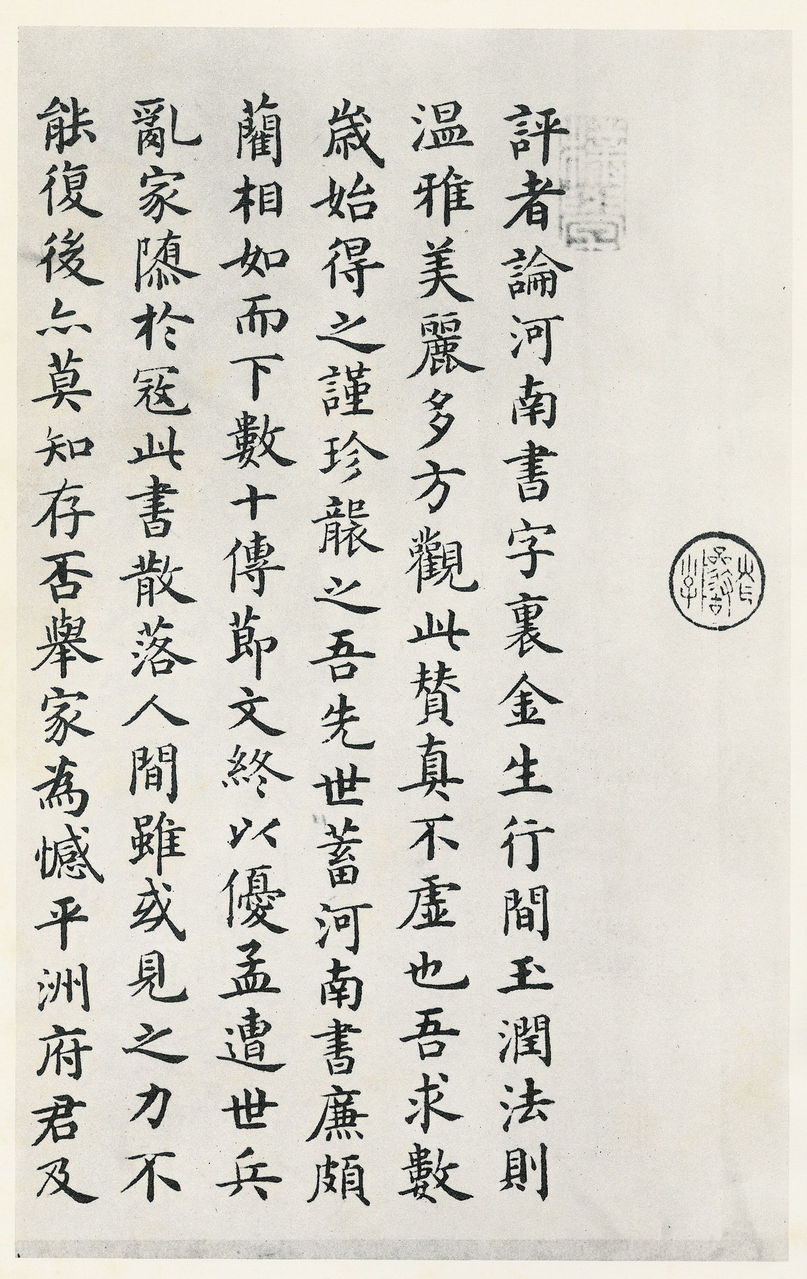 評者論河南書字裏金生行間玉潤法則
温雅美麗多方觀此賛真不虚也吾求數
歳始得之謹珍襲之吾先世蓄河南書廉頗
藺相如而下數十傳節文終以優孟遭世兵
亂家隳於冦此書散落人間雖或見之力不
能復後亦莫知存否舉家為憾平洲府君及